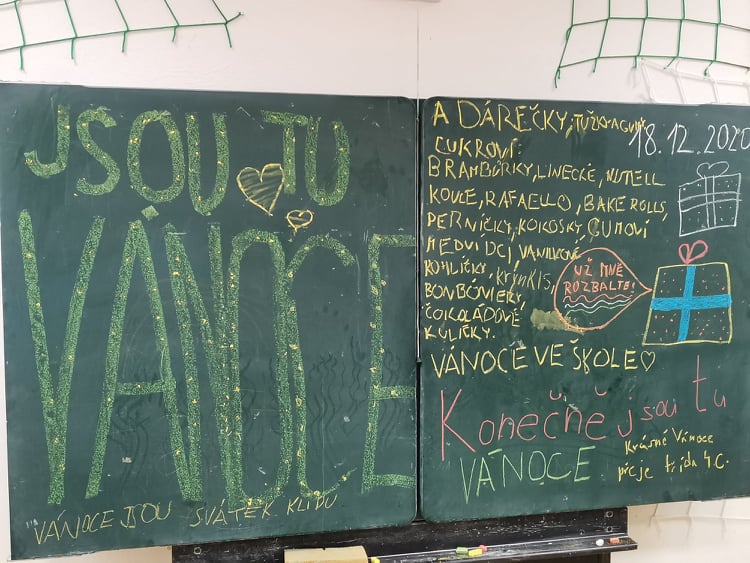 JSOU TU
VÁNOCE
VÁNOCE JSOU SVÁTEK KLIDU
A DÁREČKY,
18.12.2020
CUKROVÍ:
BRAMBŮRKY, LINECKÉ, NUTELL
KOULE, RAFAELLO, BAKE ROLLS,
PERNÍČKY, KOKOSKY, GUMOVÍ
MEDVÍDCI, VANILKOVÉ
ROHLÍČKY, krynkls,
BONBÓNIERY,
ČOKOLÁDOVÉ
KULIČKY.
UŽ MNĚ
ROZBALTE!
VÁNOCE VE ŠKOLE♡
Konečně jsou tu
VÁNOCE
Krásné Vánoce
přeje třída 4.C.